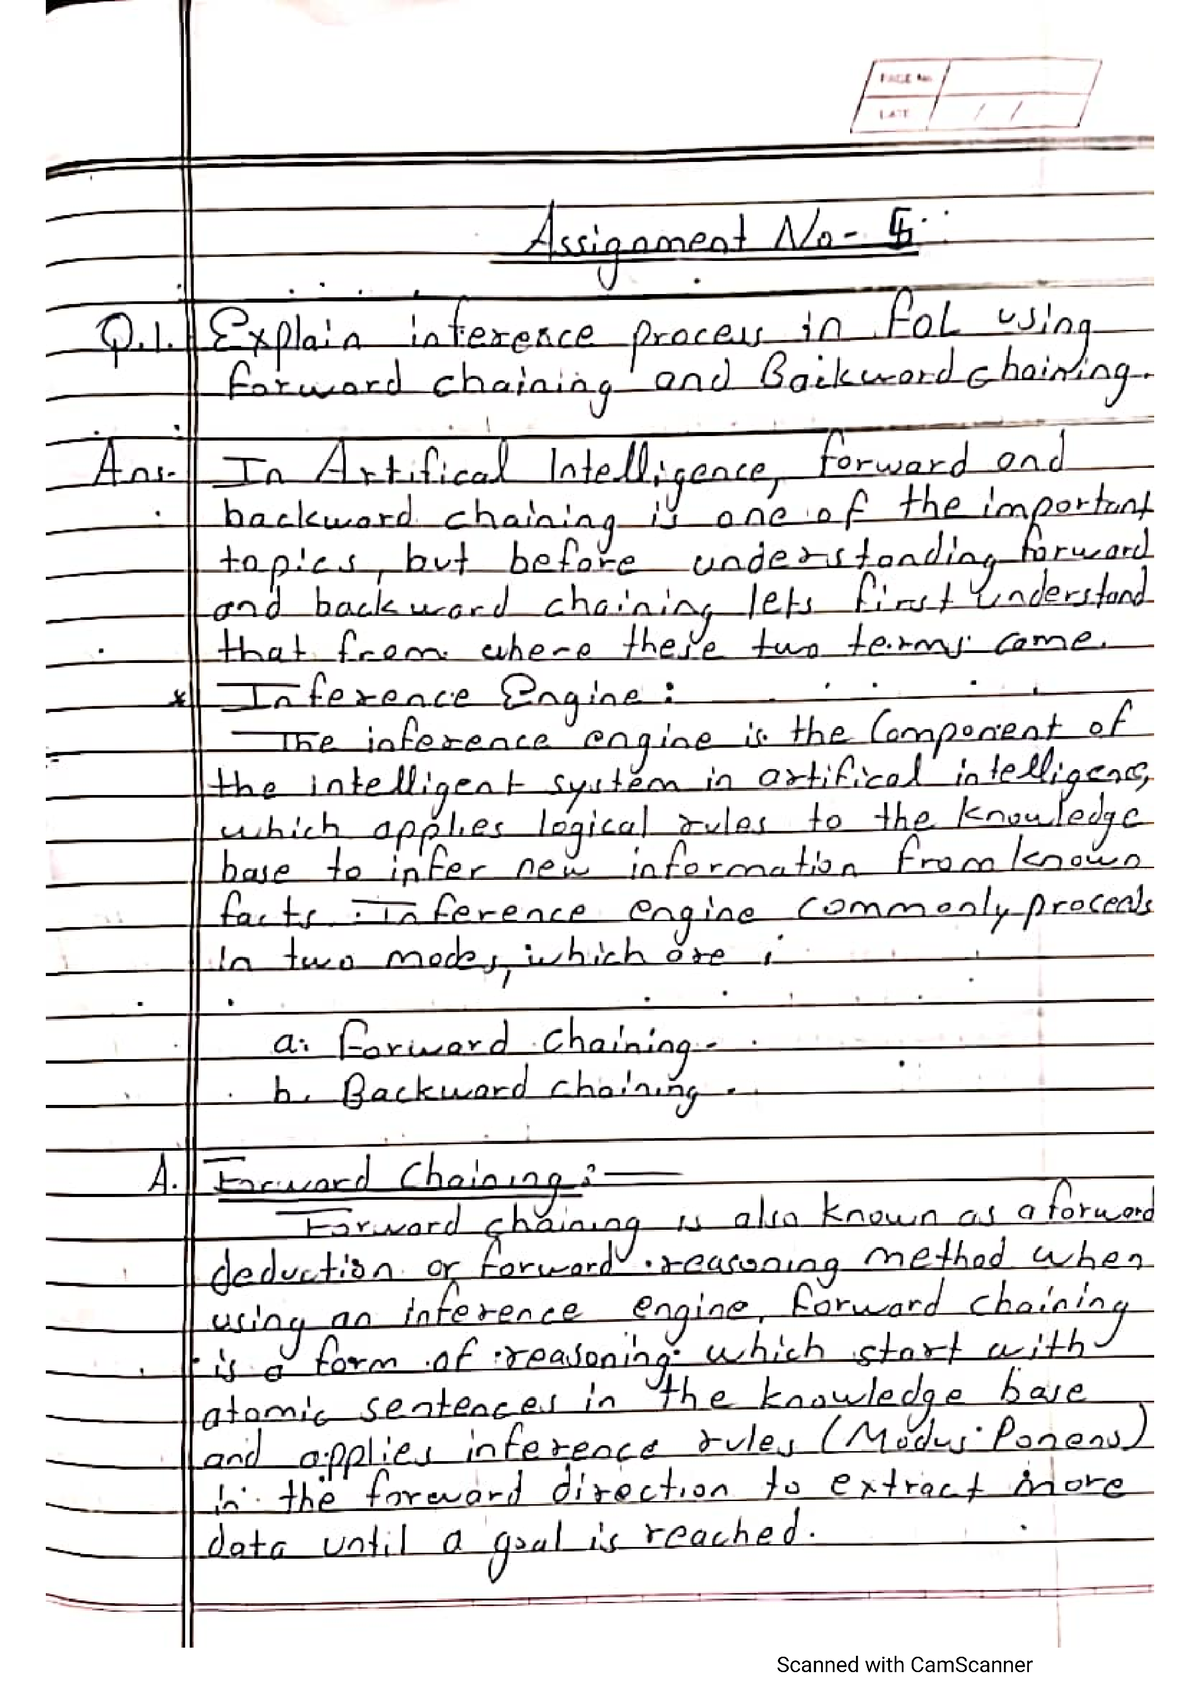 PAGE No.
DATE / /
Assignment No-
Q.1. Explain inference process in FOL using
forward chaining and Backword chaining.
Ans. In Artifical Intelligence, forward and
backword chaining is one of the important
topics, but before understanding forward
and backward chaining lets first understand
that from where these two terms came.
* Inference Engine:
The inference engine is the Component of
the intelligent system in artifical intelligence,
which applies logical rules to the knowledge
base to infer new information from known
facts. Inference engine commonly proceeds
in two modes, which are :
a. Forward chaining.
b. Backward chaining.
A. Forward Chaining :—
Forward chaining is also known as a forward
deduction or forward reasoning method when
using an inference engine, forward chaining
is a form of reasoning which start with
atomic sentences in the knowledge base
and applies inference rules (Modus Ponens)
in the forward direction to extract more
data until a goal is reached.
Scanned with CamScanner